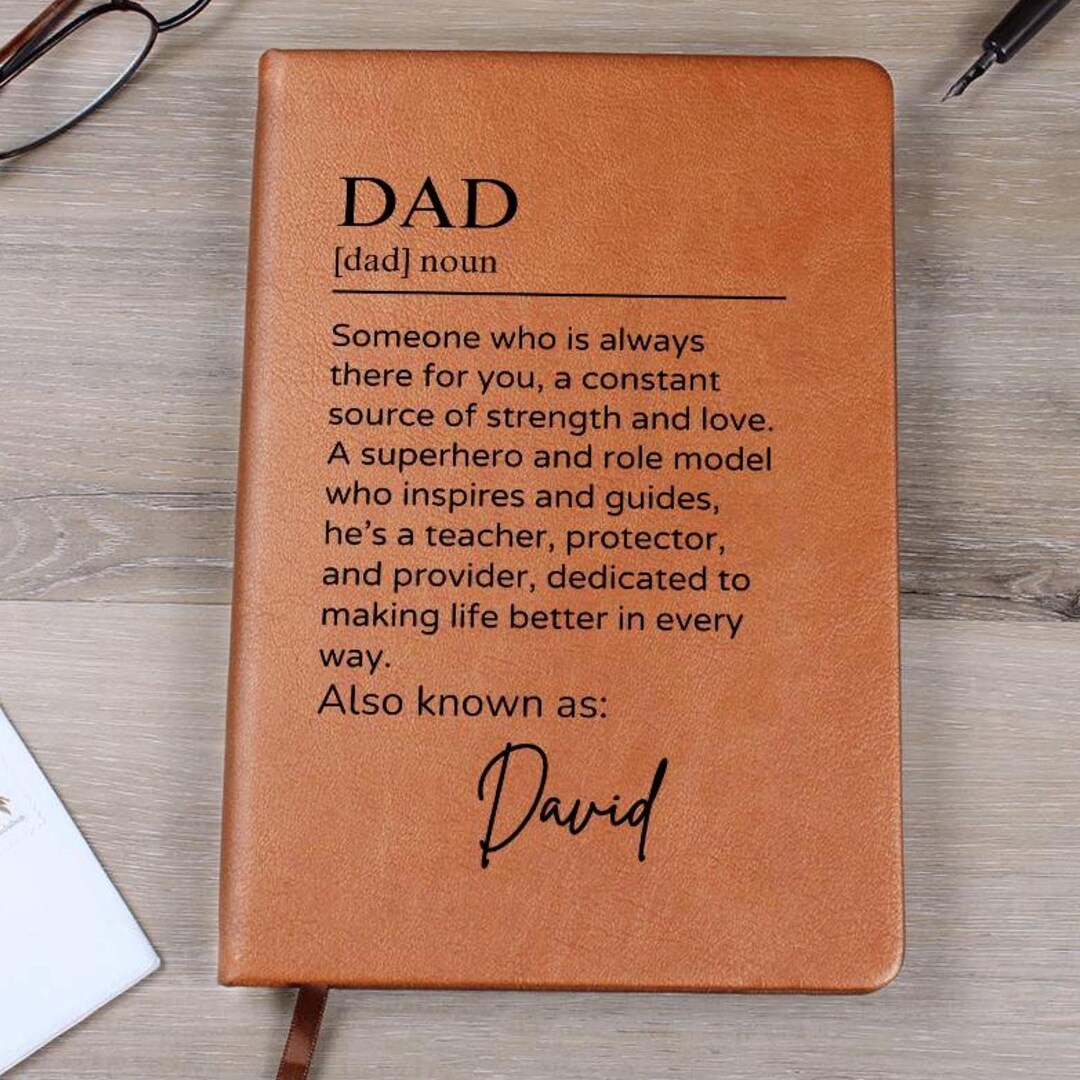 DAD
[dad] noun
Someone who is always
there for you, a constant
source of strength and love.
A superhero and role model
who inspires and guides,
he’s a teacher, protector,
and provider, dedicated to
making life better in every
way.
Also known as:
David